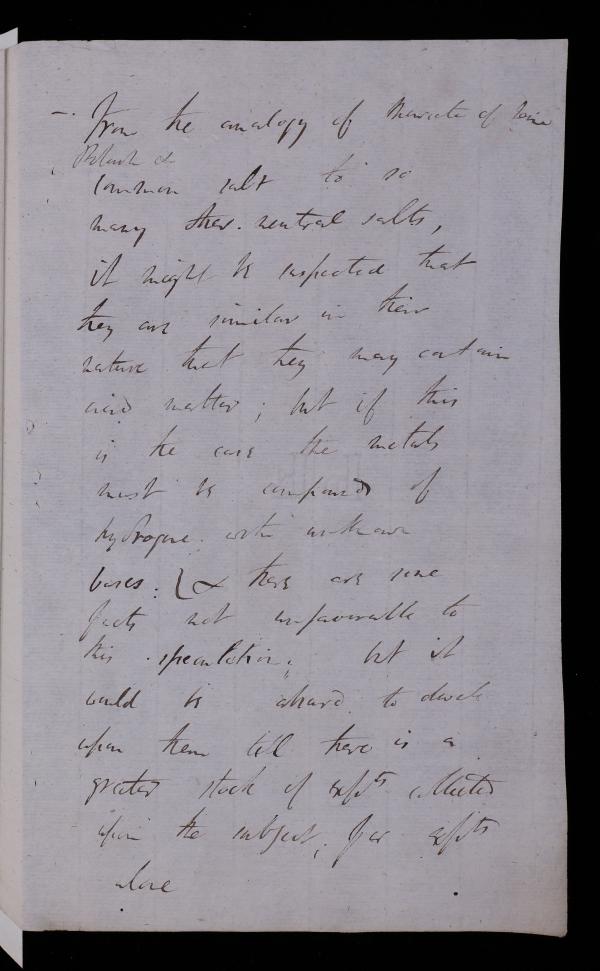 – From the analogy of Muriate of
Potash &
common salt to so
many other neutral salts,
it might be suspected that
they are similar in their
nature that they may contain
acid matter; but if this
is the case the metals
must be compounds of
hydrogene with unknown
bases. & there are some
facts not unfavourable to
this speculation; but it
would be absurd to dwell
upon them till there is a
greater stock of expts collected
upon the subject, for expts
alone